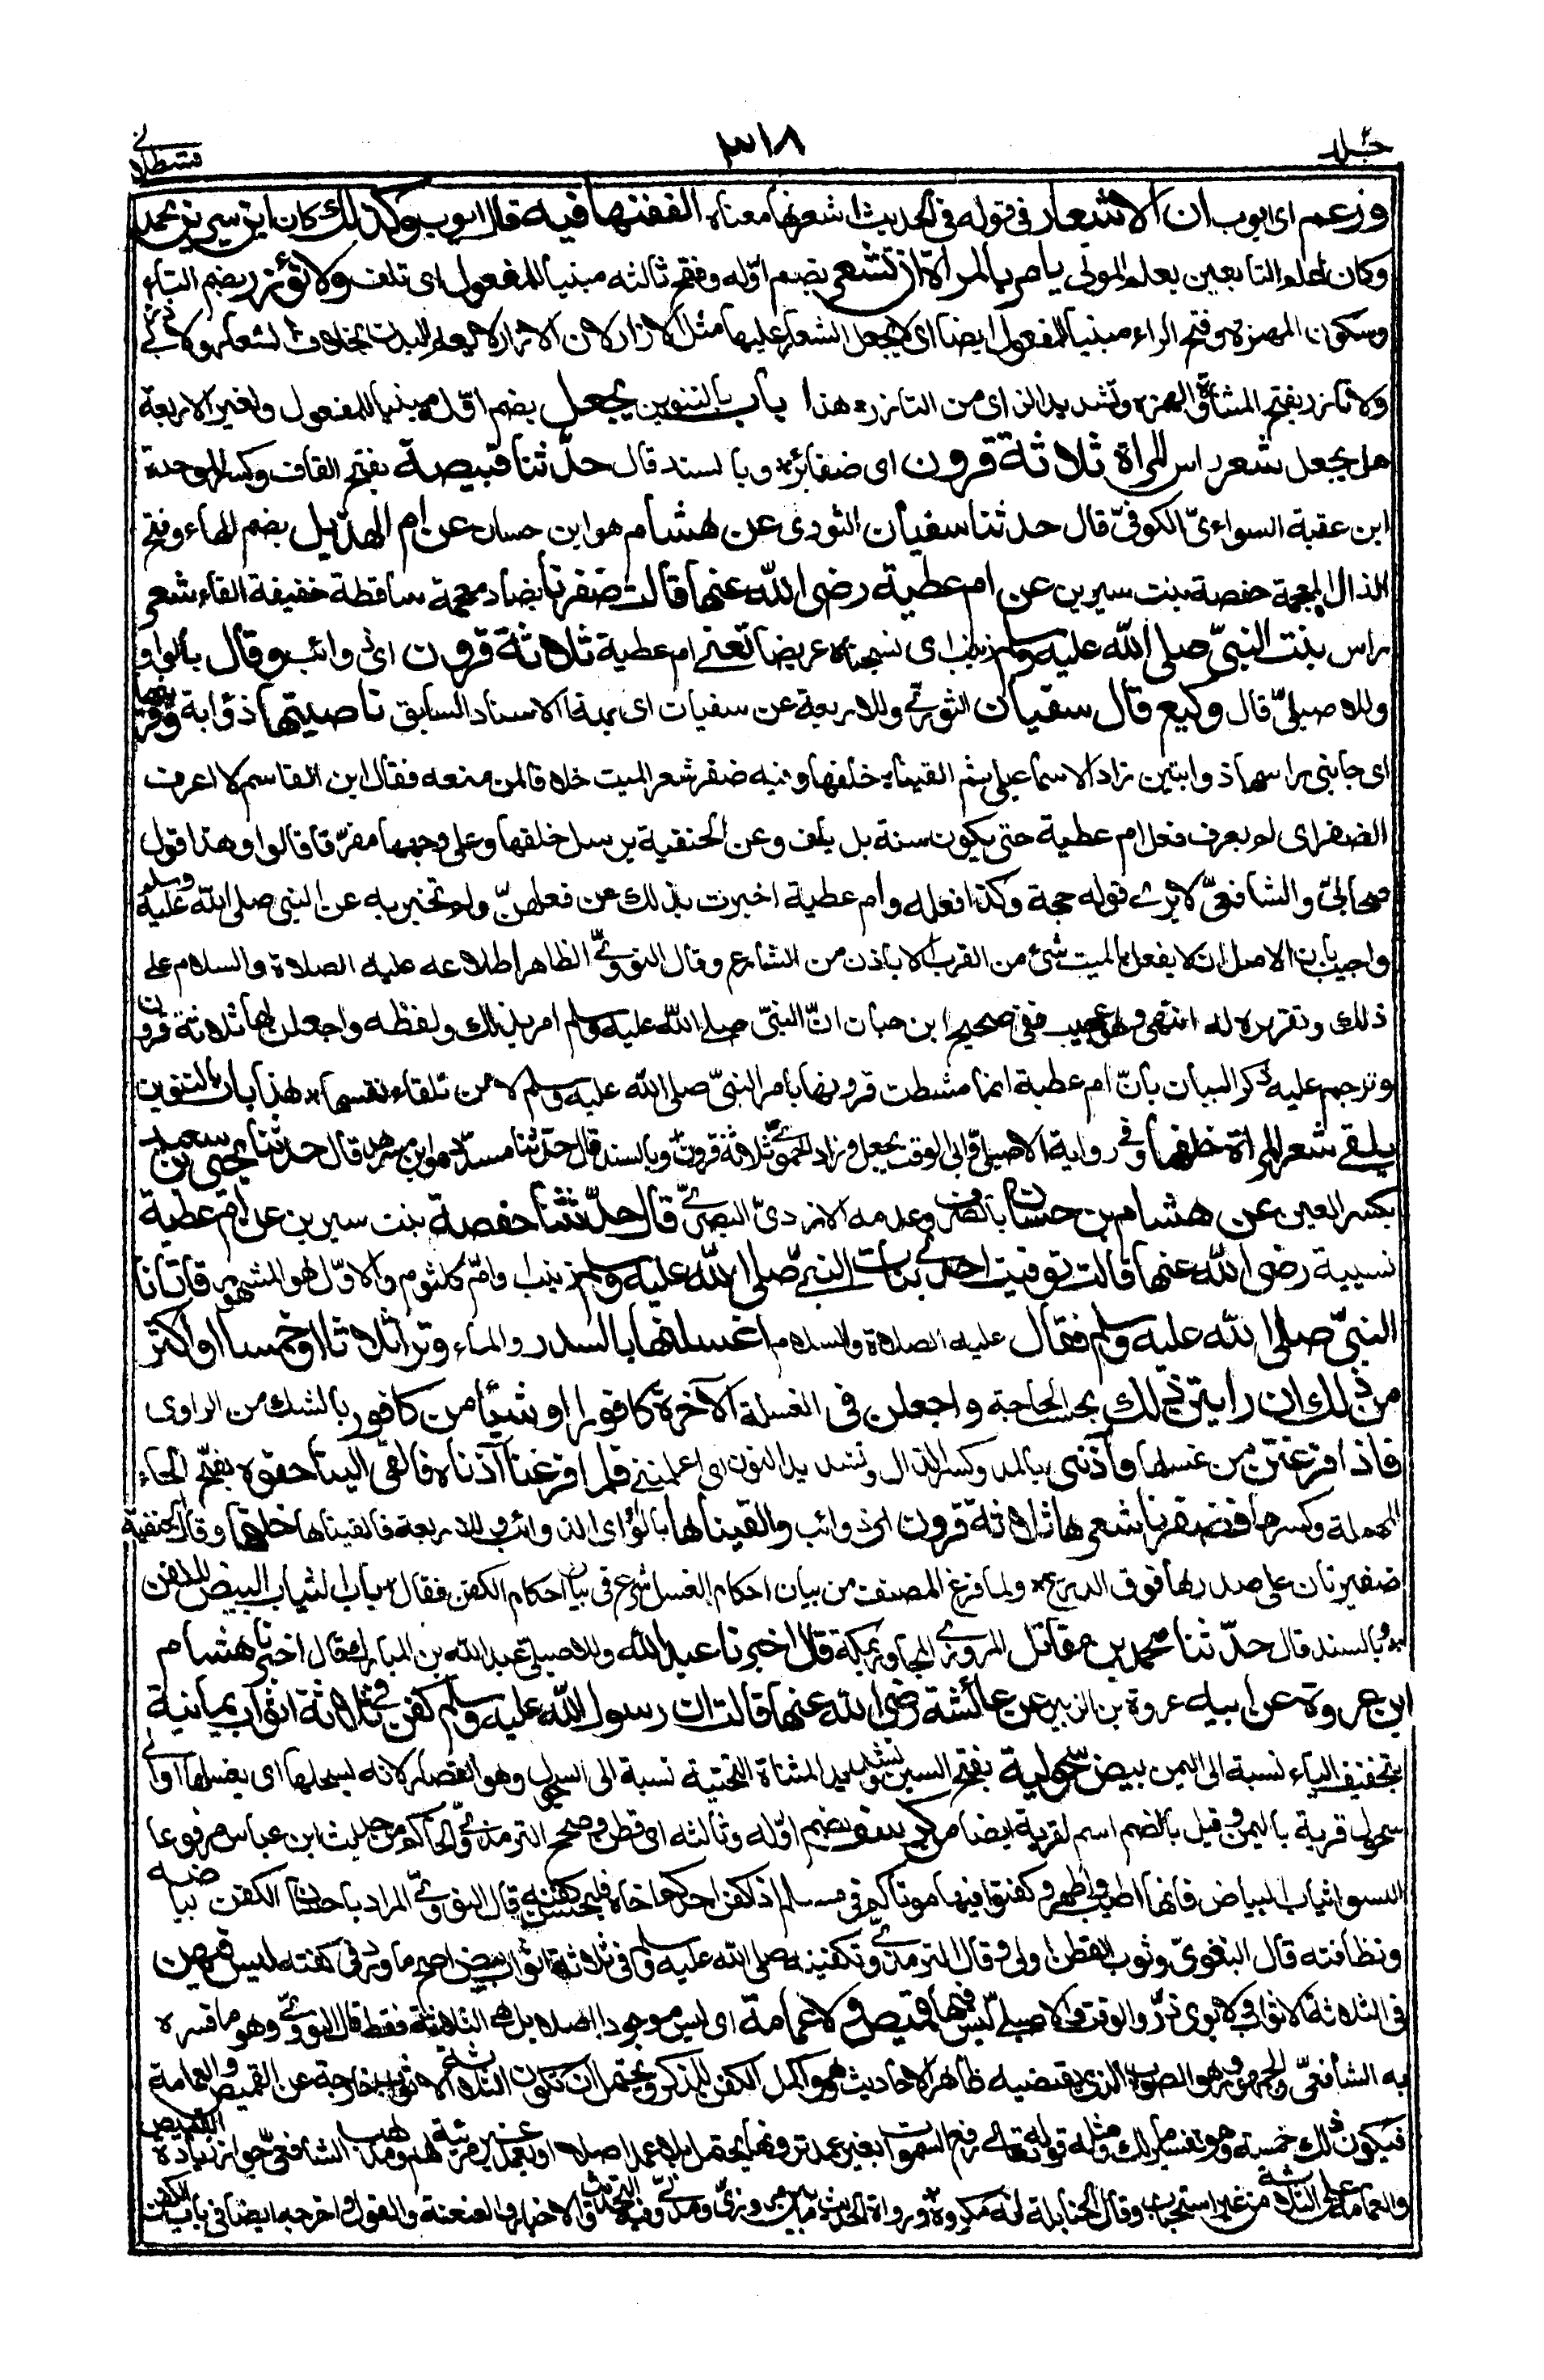 جلد ٣١٨ قسطلانى
وزعم اى ايوب ان الاشعار فى قوله فى الحديث اشعرنها معناه الففنها فيه قال ايوب وكذلك كان ابن سيرين محمد
وكان اعلم التابعين بعلم الموتى يامر بالمراة ان تشعر بضم اوّله وفتح ثالثه مبنيا للمفعول اى تلف ولا تؤزر بضم التاء
وسكون الهمزة وفتح الراء مبنيا للمفعول ايضا اى لا يجعل الشعار عليها مثل الازار لان الازار لا يعم البدن بخلاف الشعار ولابى ذر
ولا تازر بفتح المثناة والهمزة وتشديد الزاى من التازر * هذا باب بالتنوين يجعل بضم اوّله مبنيا للمفعول ولغير الاربعة
هل يجعل شعر راس المراة ثلاثة قرون اى ضفائر * وبالسند قال حدّثنا قبيصة بفتح القاف وكسر الموحدة
ابن عقبة السواءىّ الكوفىّ قال حدثنا سفيان الثورى عن هشام هو ابن حسان عن ام الهذيل بضم الهاء وفتح
الذال المعجمة حفصة بنت سيرين عن ام عطية رضى الله عنها قالت ضفرنا بضاد معجمة ساقطة خفيفة الفاء شعر
راس بنت النبىّ صلى الله عليه وسلم زينب اى نسجناه عريضا تعنى ام عطية ثلاثة قرون اى ذوائب وقال بالواو
وللاصيلىّ قال وكيع قال سفيان الثورىّ وللاربعة عن سفيان اى بهذا الاسناد السابق ناصيتها ذؤابة وقرنيها
اى جانبى راسها ذوابتين زاد الاسماعيلى ثم القيناه خلفها وفيه ضفر شعر الميت خلافا لمن منعه فقال ابن القاسم لا اعرف
الضفر اى لم يعرف فعل ام عطية حتى يكون سنة بل يلف وعن الحنفية يرسل خلفها وعلى وجهها مفرّقا قالوا وهذا قول
صحابىّ والشافعىّ لا يرى قوله حجة وكذا فعله وام عطية اخبرت بذلك عن فعلهنّ ولم تخبر به عن النبى صلى الله عليه وسلم
واجيب بان الاصل ان لا يفعل بالميت شئ من القرب الا باذن من الشارع وقال النووىّ الظاهر اطلاعه عليه الصلاة والسلام على
ذلك وتقريره له انتهى وهو عجيب ففى صحيح ابن حبان انّ النبىّ صلى الله عليه وسلم امر بذلك ولفظه واجعلن لها ثلاثة قرون
وترجم عليه ذكر البيان بانّ ام عطية انما مشطت قرونها بامر النبىّ صلى الله عليه وسلم لا من تلقاء نفسها * هذا باب بالتنوين
يلقى شعر المراة خلفها وفى رواية الاصيلىّ وابى الوقت يجعل وزاد الحموىّ ثلاثة قرون وبالسند قال حدّثنا مسدّد هو ابن مسرهد قال حدثنا يحيى بن سعيد
بكسر العين عن هشام بن حسان بالصرف وعدمه الازدىّ البصرىّ قال حدّثتنا حفصة بنت سيرين عن ام عطية
نسيبة رضى الله عنها قالت توفيت احدى بنات النبىّ صلى الله عليه وسلم زينب او امّ كلثوم والاوّل هو المشهور فاتانا
النبىّ صلى الله عليه وسلم فقال عليه الصلاة والسلام اغسلنها بالسدر والماء وترا ثلاثا او خمسا او اكثر
من ذلك ان رايتن ذلك بحسب الحاجة واجعلن فى الغسلة الآخرة كافورا او شيئا من كافور بالشك من الراوى
فاذا فرغتن من غسلها فآذننى بالمد وكسر الذال وتشديد النون اى اعلمننى فلما فرغنا آذناه فالقى الينا حقوه بفتح الحاء
المهملة وكسرها فضفرنا شعرها ثلاثة قرون اى ذوائب والقيناها بالواو اى الذوائب وللاربعة فالقيناها خلفها وقال الحنفية
ضفيرتان على صدرها فوق الدرع * ولما فرغ المصنف من بيان احكام الغسل شرع فى بيان احكام الكفن فقال * باب الثياب البيض للكفن
* وبالسند قال حدّثنا محمد بن مقاتل المروزى المجاور بمكة قال اخبرنا عبد الله وللاصيلى عبد الله بن المبارك قال اخبرنا هشام
ابن عروة عن ابيه عروة بن الزبير عن عائشة رضى الله عنها قالت ان رسول الله عليه وسلم كفن فى ثلاثة اثواب يمانية
بتخفيف الياء نسبة الى اليمن بيض سحولية بفتح السين وتشديد المثناة التحتية نسبة الى السحول وهو القصار لانه يسحلها اى يغسلها او الى
سحول قرية باليمن وقيل بالضم اسم لقرية ايضا من كرسف بضم اوّله وثالثه اى قطن وصحح الترمذىّ والحاكم من حديث ابن عباس مرفوعا
البسوا ثياب البياض فانها اطيب واطهر وكفنوا فيها موتاكم وفى مسلم اذا كفن احدكم اخاه فليحسن كفنه قال النووىّ المراد باحسان الكفن بياضه
ونظافته قال البغوىّ وثوب القطن اولى وقال الترمذىّ وتكفينه صلى الله عليه وسلم فى ثلاثة اثواب بيض اصح ما ورد فى كفنه ليس فيهن
فى الثلاثة الاثواب ولابوى ذرّ والوقت والاصيلىّ ليس فيها قميص ولا عمامة اى ليس موجودا اصلا بل هى الثلاثة فقط قال النووىّ وهو ما فسره
به الشافعىّ والجمهور وهو الصواب الذى يقتضيه ظاهر الاحاديث وهو اكمل الكفن للذكر ويحتمل ان تكون الثلاثة الاثواب خارجة عن القميص والعمامة
فيكون ذلك خمسة وهو تفسير مالك ومثله قوله تعالى رفع السموات بغير عمد ترونها يحتمل بلا عمد اصلا او بعمد غير مرئية لهم ومذهب الشافعىّ جواز زيادة القميص
والعمامة على الثلاثة من غير استحباب وقال الحنابلة انه مكروه * ورواة الحديث ما بين مروزىّ ومدنىّ وفيه التحديث والاخبار والعنعنة والقول واخرجه ايضا فى باب الكفن